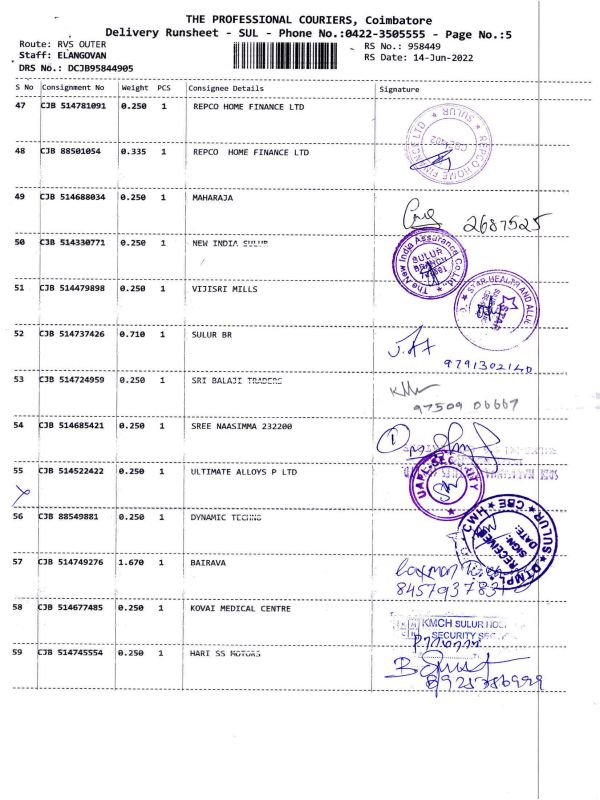 THE PROFESSIONAL COURIERS, Coimbatore
Delivery Runsheet - SUL - Phone No.:0422-3505555 - Page No.:5
Route: RVS OUTER
RS No.: 958449
Staff: ELANGOVAN
RS Date: 14-Jun-2022
DRS No.: DCJB95844905
S No Consignment No Weight PCS Consignee Details Signature
47 CJB 514781091 0.250 1 REPCO HOME FINANCE LTD
SULUR
REPCO HOME FINANCE LTD
48 CJB 88501054 0.335 1 REPCO HOME FINANCE LTD
49 CJB 514688034 0.250 1 MAHARAJA
2687525
50 CJB 514330771 0.250 1 NEW INDIA SULUR
The New India Assurance Co.Ltd.
SULUR
BRANCH
51 CJB 514479898 0.250 1 VIJISRI MILLS
STAR HEALTH AND ALLIE
STAR
52 CJB 514737426 0.710 1 SULUR BR
9791302140
53 CJB 514724959 0.250 1 SRI BALAJI TRADERS
97509 06667
54 CJB 514685421 0.250 1 SREE NAASIMMA 232200
1
55 CJB 514522422 0.250 1 ULTIMATE ALLOYS P LTD
UAPL-SECURITY
X
56 CJB 88549881 0.250 1 DYNAMIC TECHNO
CWH ★ CBE ★ SULUR
DTMPL
RECEIVED
SIGN:
DATE:
57 CJB 514749276 1.670 1 BAIRAVA
8457937831
58 CJB 514677485 0.250 1 KOVAI MEDICAL CENTRE
KMCH SULUR HOS
SECURITY
59 CJB 514745554 0.250 1 HARI SS MOTORS